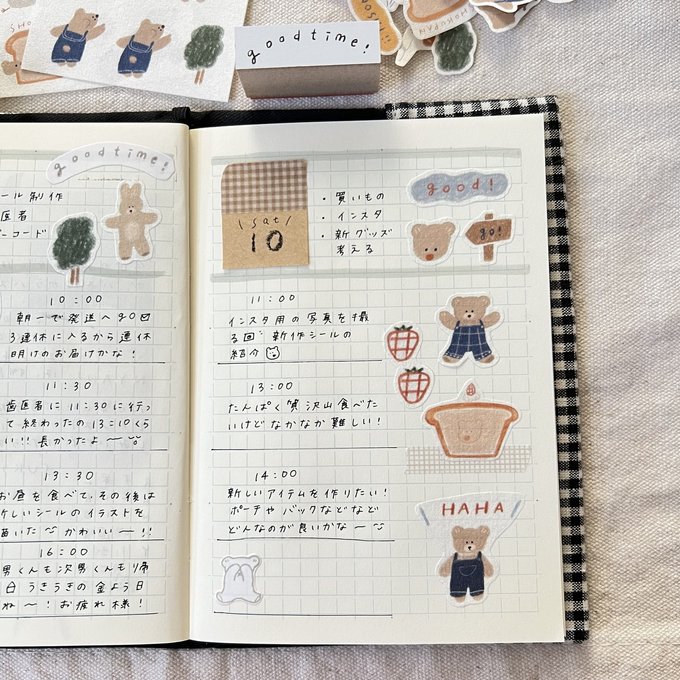 goodtime!
goodtime!
ール制作
医者
バーコード
10:00
朝一で発送へgo
3連休に入るから連休
明けのお届けかな!
11:30
歯医者に11:30に行っ
て終わったの13:10くら
い!!長かったよー
13:30
お昼を食べて、その後は
新しいシールのイラストを
描いた かわいいー!!
16:00
男くんも次男くんも帰
白 うきうきの金よう日
ね〜!お疲れ様!
\sat/
10
・買いもの
・インスタ
・新グッズ
考える
good!
go!
11:00
インスタ用の写真を撮
る回 新作シールの
紹介
13:00
たんぱく質沢山食べた
いけどなかなか難しい!
14:00
新しいアイテムを作りたい!
ポーチやバックなどなど
どんなのが良いかなー
HAHA